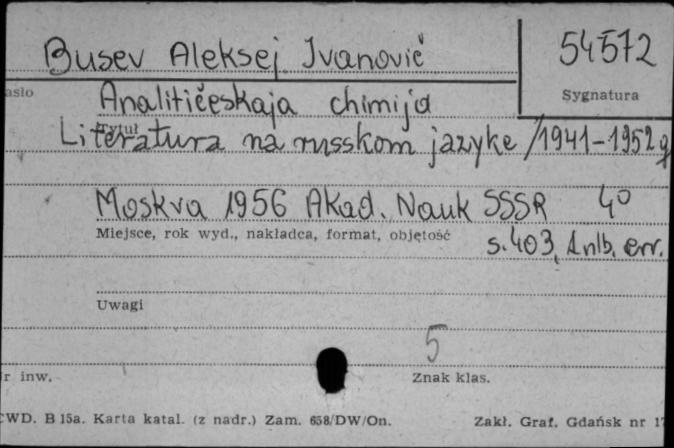 Busev Aleksej Ivanovič
54572
asło
Sygnatura
Analitičeskaja chimija
Tytuł
Literatura na russkom jazyke /1941-1952 g
Moskva 1956 Akad. Nauk SSSR 4°
Miejsce, rok wyd., nakładca, format, objętość
s. 403, 1 nlb, err.
Uwagi
5
r inw.
Znak klas.
CWD. B 15a. Karta katal. (z nadr.) Zam. 658/DW/On.
Zakł. Graf. Gdańsk nr 1